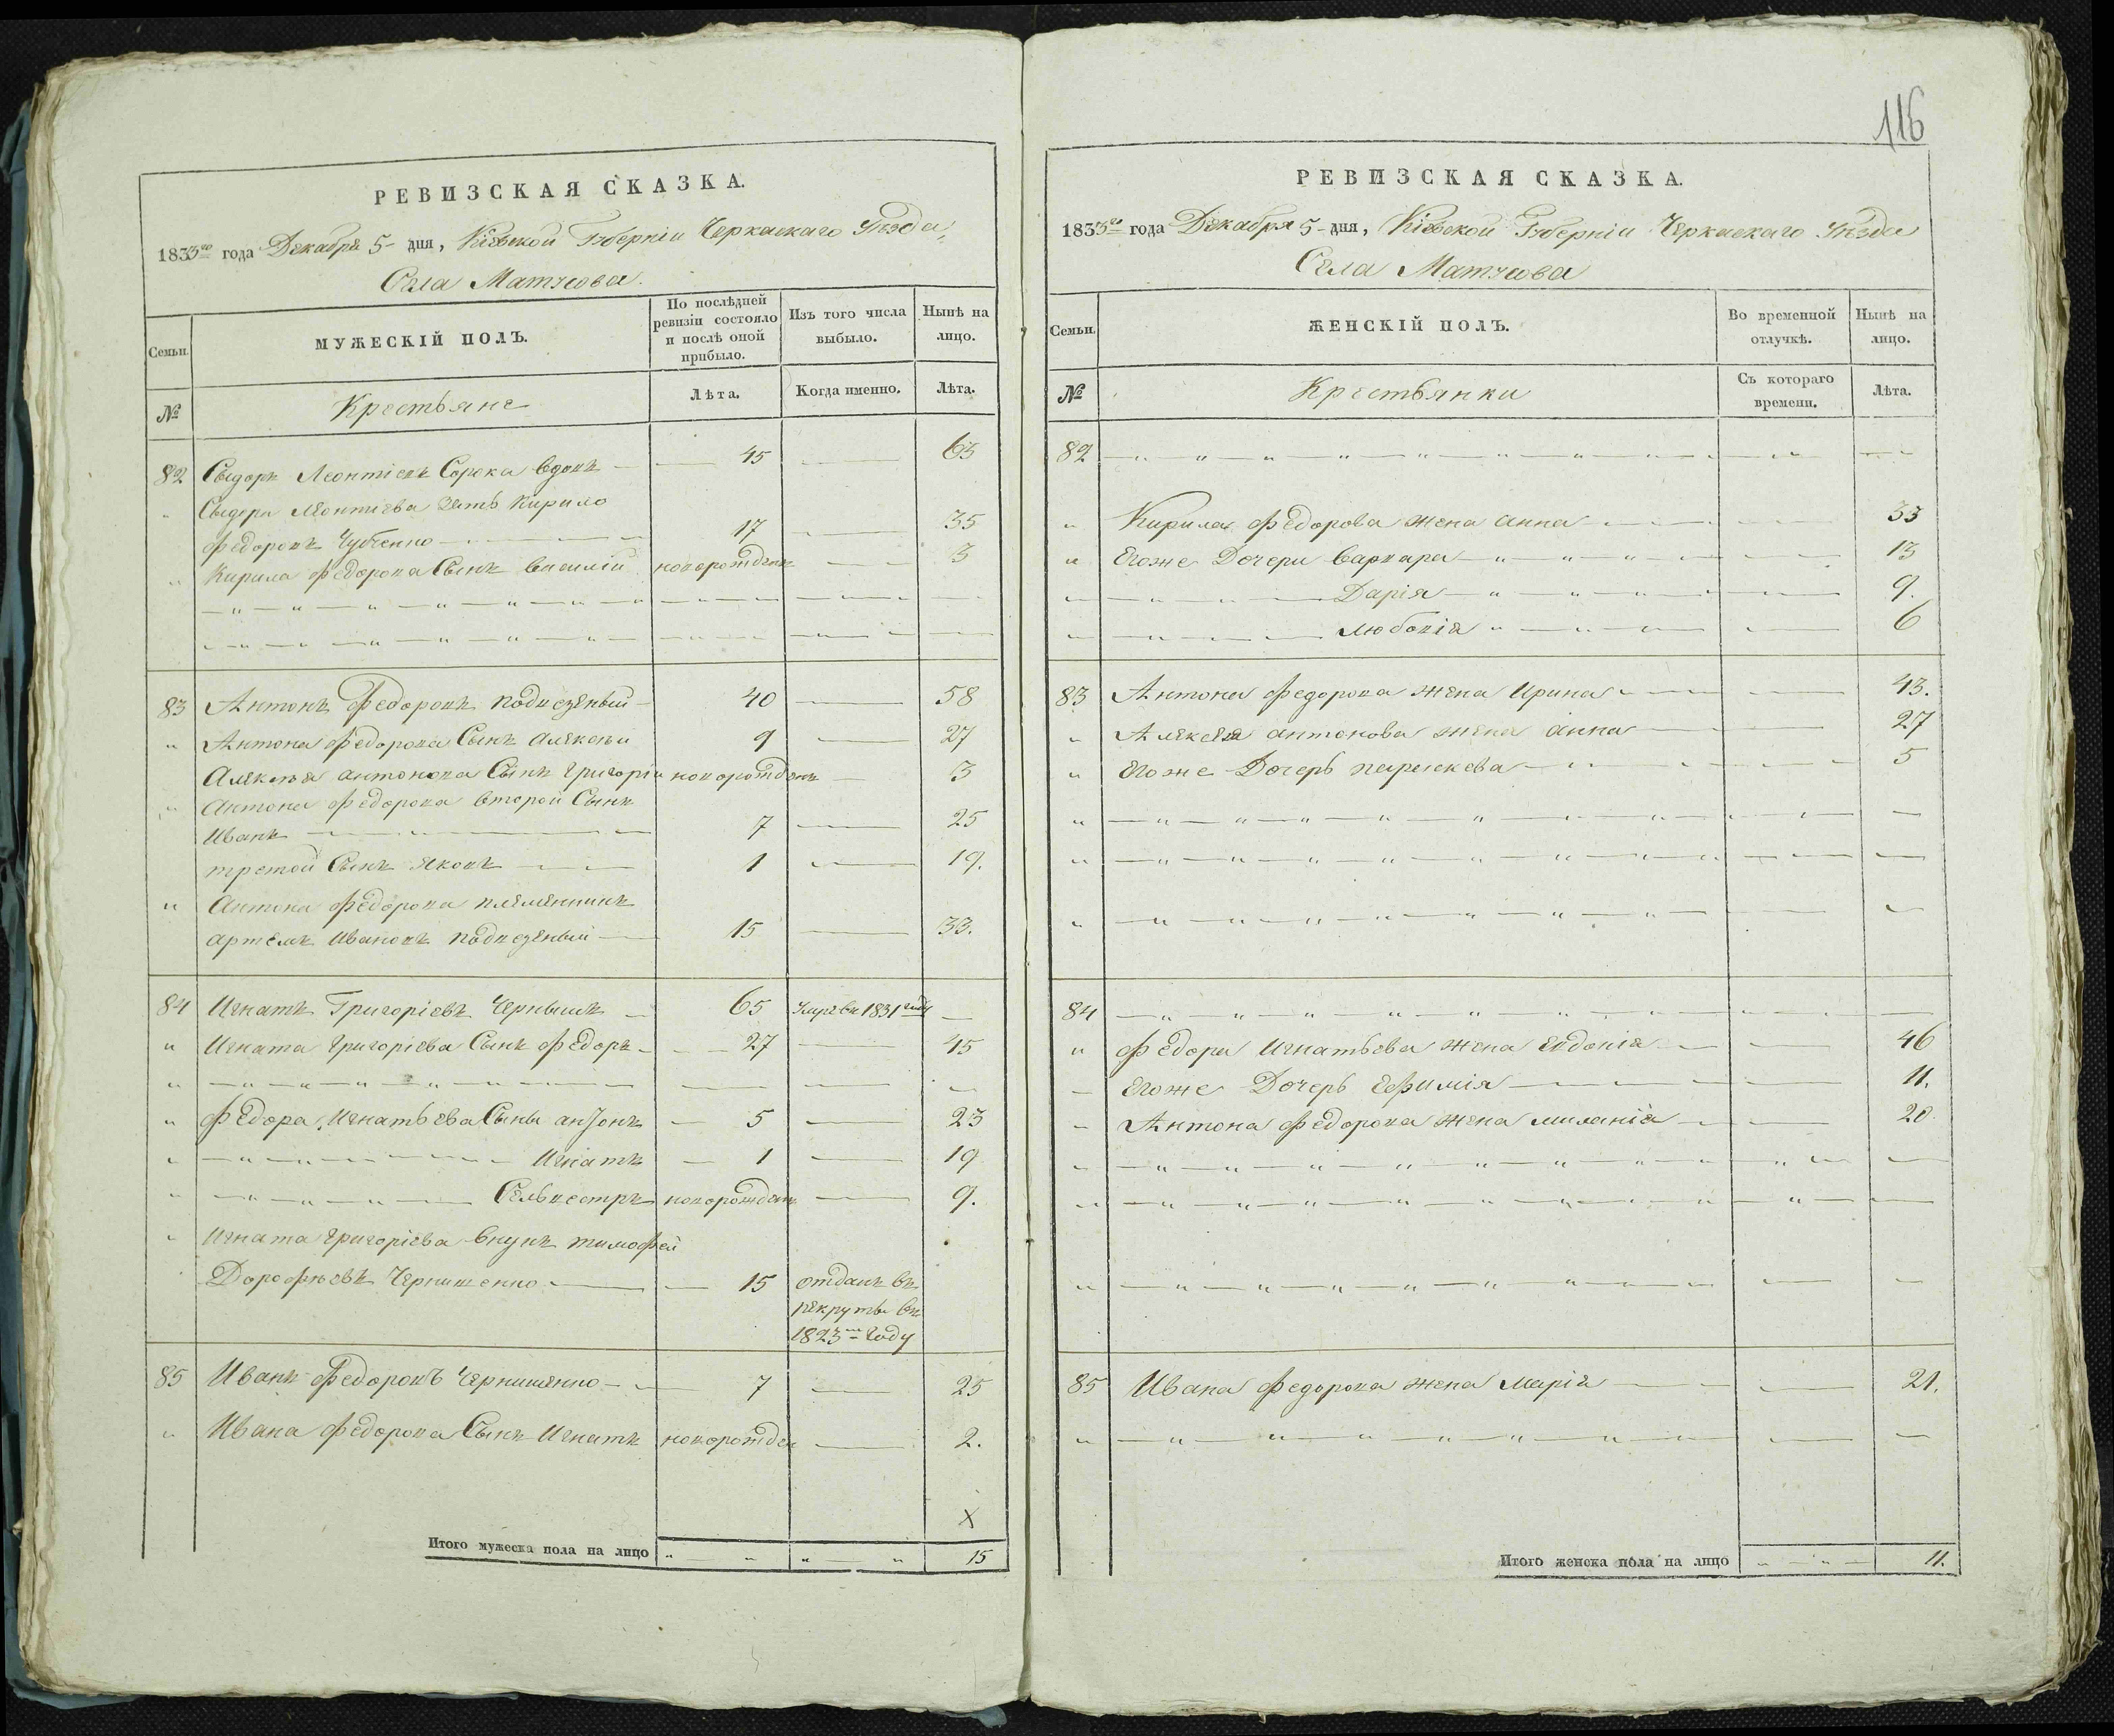 116
РЕВИЗСКАЯ СКАЗКА.
1833го года Декабря 5 дня, Кіевской Губерніи Черкаскаго Уѣзда,
Села Матусова.
Семьи.
МУЖЕСКІЙ ПОЛЪ.
По послѣдней ревизіи состояло и послѣ оной прибыло.
Изъ того числа выбыло.
Нынѣ на лицо.
№
Крестьяне
Лѣта.
Когда именно.
Лѣта.
82 Сыдоръ Леонтіевъ Сорока вдовъ — 45 — 63
„ Сыдора Леонтіева зять Кирило
Федоровъ Чубченко — 17 — 35
„ Кирила Федорова Сынъ Василій новорожденъ — 3
83 Антонъ Федоровъ Подвезеный — 40 — 58
„ Антона Федорова Сынъ Алексѣй 9 — 27
Алексѣя Антонова Сынъ Григорій новорожденъ — 3
„ Антона Федорова второй Сынъ
Иванъ — 7 — 25
третой Сынъ Яковъ — 1 — 19.
„ Антона Федорова племенникъ
Артемъ Ивановъ Подвезеный — 15 — 33.
84 Игнатъ Григоріевъ Чернышъ — 65 Умръ въ 1831 году —
„ Игната Григоріева Сынъ Федоръ — 27 — 45
„ Федора Игнатьева Сыны Антонъ — 5 — 23
„ Игнатъ — 1 — 19
„ Сельвестръ новорожденъ — 9.
„ Игната Григоріева внукъ Тимофей
Дорофѣевъ Чернишенко — 15 отданъ въ
рекруты въ
1823м году
85 Иванъ Федоровъ Чернишенко — 7 — 25
„ Ивана Федорова Сынъ Игнатъ новорожден — 2.
Х
Итого мужеска пола на лицо „ — „ „ — „ 15
РЕВИЗСКАЯ СКАЗКА.
1833го года Декабря 5 дня, Кіевской Губерніи Черкаскаго Уѣзда
Села Матусова
Семьи.
ЖЕНСКІЙ ПОЛЪ.
Во временной отлучкѣ.
Нынѣ на лицо.
№
Крестьянки
Съ котораго времени.
Лѣта.
82
„ Кирила Федорова жена Анна — 33
„ Егоже Дочери Варвара — 13
Дарія — 9.
Любовія — 6
83 Антона Федорова жена Ирина — 43.
„ Алексея Антонова жена Анна — 27
„ Егоже Дочерь Параскева — 5
84
„ Федора Игнатьева жена Евдокія — 46
Егоже Дочерь Ефимія — 11.
Антона Федорова жена Миланія — 20
85 Ивана Федорова жена Марія — 21.
Итого женска пола на лицо „ — „ — 11.